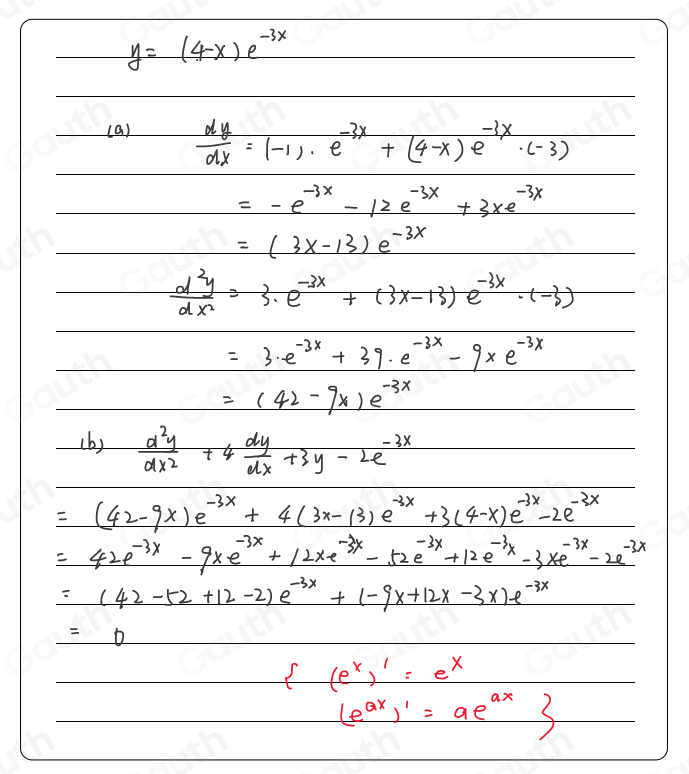 y = (4-x)e^{-3x}
(a) \frac{dy}{dx} = (-1) \cdot e^{-3x} + (4-x)e^{-3x} \cdot (-3)
= -e^{-3x} - 12e^{-3x} + 3xe^{-3x}
= (3x-13)e^{-3x}
\frac{d^2y}{dx^2} = 3 \cdot e^{-3x} + (3x-13)e^{-3x} \cdot (-3)
= 3 \cdot e^{-3x} + 39 \cdot e^{-3x} - 9xe^{-3x}
= (42-9x)e^{-3x}
(b) \frac{d^2y}{dx^2} + 4\frac{dy}{dx} + 3y - 2e^{-3x}
= (42-9x)e^{-3x} + 4(3x-13)e^{-3x} + 3(4-x)e^{-3x} - 2e^{-3x}
= 42e^{-3x} - 9xe^{-3x} + 12xe^{-3x} - 52e^{-3x} + 12e^{-3x} - 3xe^{-3x} - 2e^{-3x}
= (42-52+12-2)e^{-3x} + (-9x+12x-3x)e^{-3x}
= 0
{ (e^x)' = e^x
(e^{ax})' = ae^{ax} }
Gauth